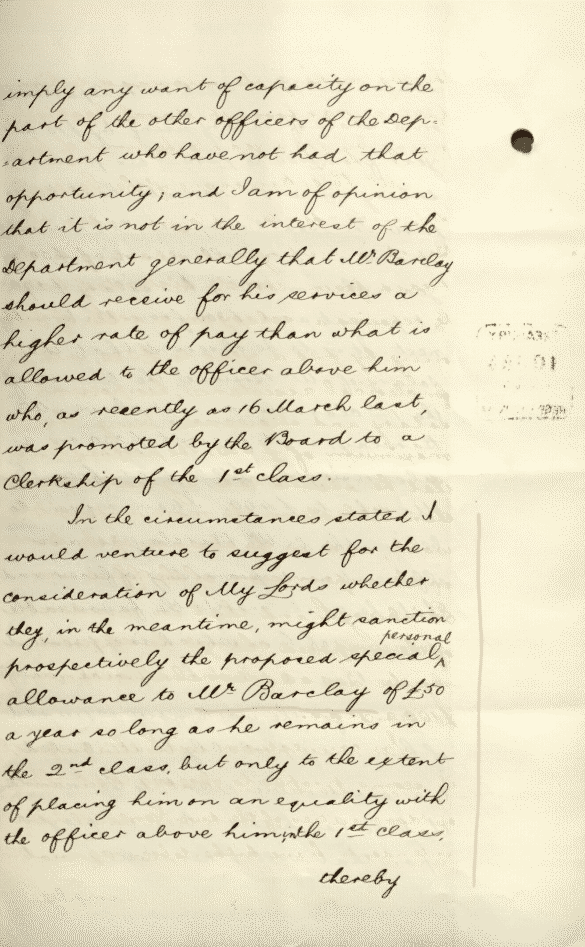 imply any want of capacity on the
part of the other officers of the Dep-
-artment who have not had that
opportunity; and I am of opinion
that it is not in the interest of the
Department generally that Mr. Barclay
should receive for his services a
higher rate of pay than what is
allowed to the officer above him
who, as recently as 16 March last,
was promoted by the Board to a
Clerkship of the 1st class.
In the circumstances stated I
would venture to suggest for the
consideration of My Lords whether
they, in the meantime, might sanction
prospectively the proposed special personal
allowance to Mr. Barclay of £50
a year so long as he remains in
the 2nd class, but only to the extent
of placing him on an equality with
the officer above him in the 1st class,
thereby